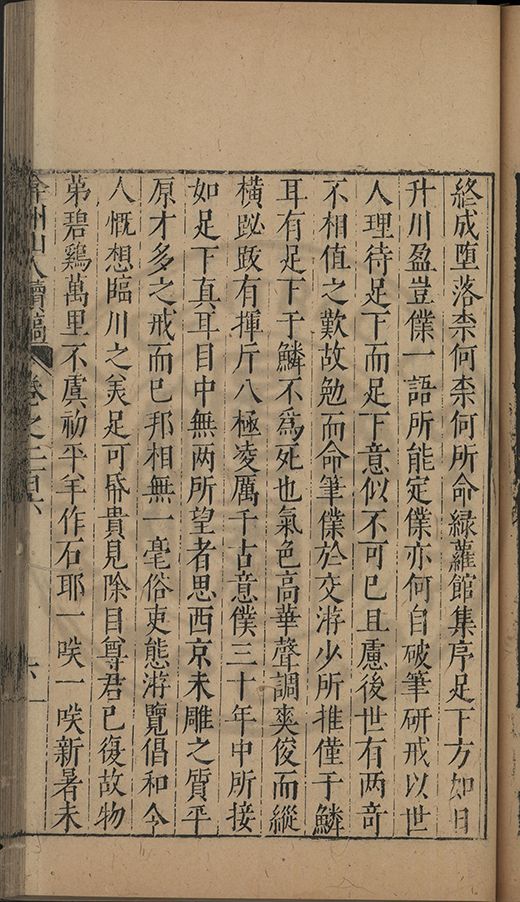 終成墮落柰何柰何所命綠蘿館集序足下方如日
升川盈豈僕一語所能定僕亦何自破筆研戒以世
人理待足下而足下意似不可已且慮後世有两竒
不相值之歎故勉而命筆僕於交游少所推僅于鱗
耳有足下于鱗不爲死也氣色高華聲調爽俊而縱
橫跋有揮斤八極凌厲千古意僕三十年中所接
如足下真耳目中無两所望者思西京未雕之質平
原才多之戒而已邦相無一毫俗吏態游覽倡和令
人慨想臨川之羙足可昏貴見除目尊君已復故物
苐碧鷄萬里不虞初平羊作石耶一咲一咲新暑未
弇州山人續稿
卷之二百六
六